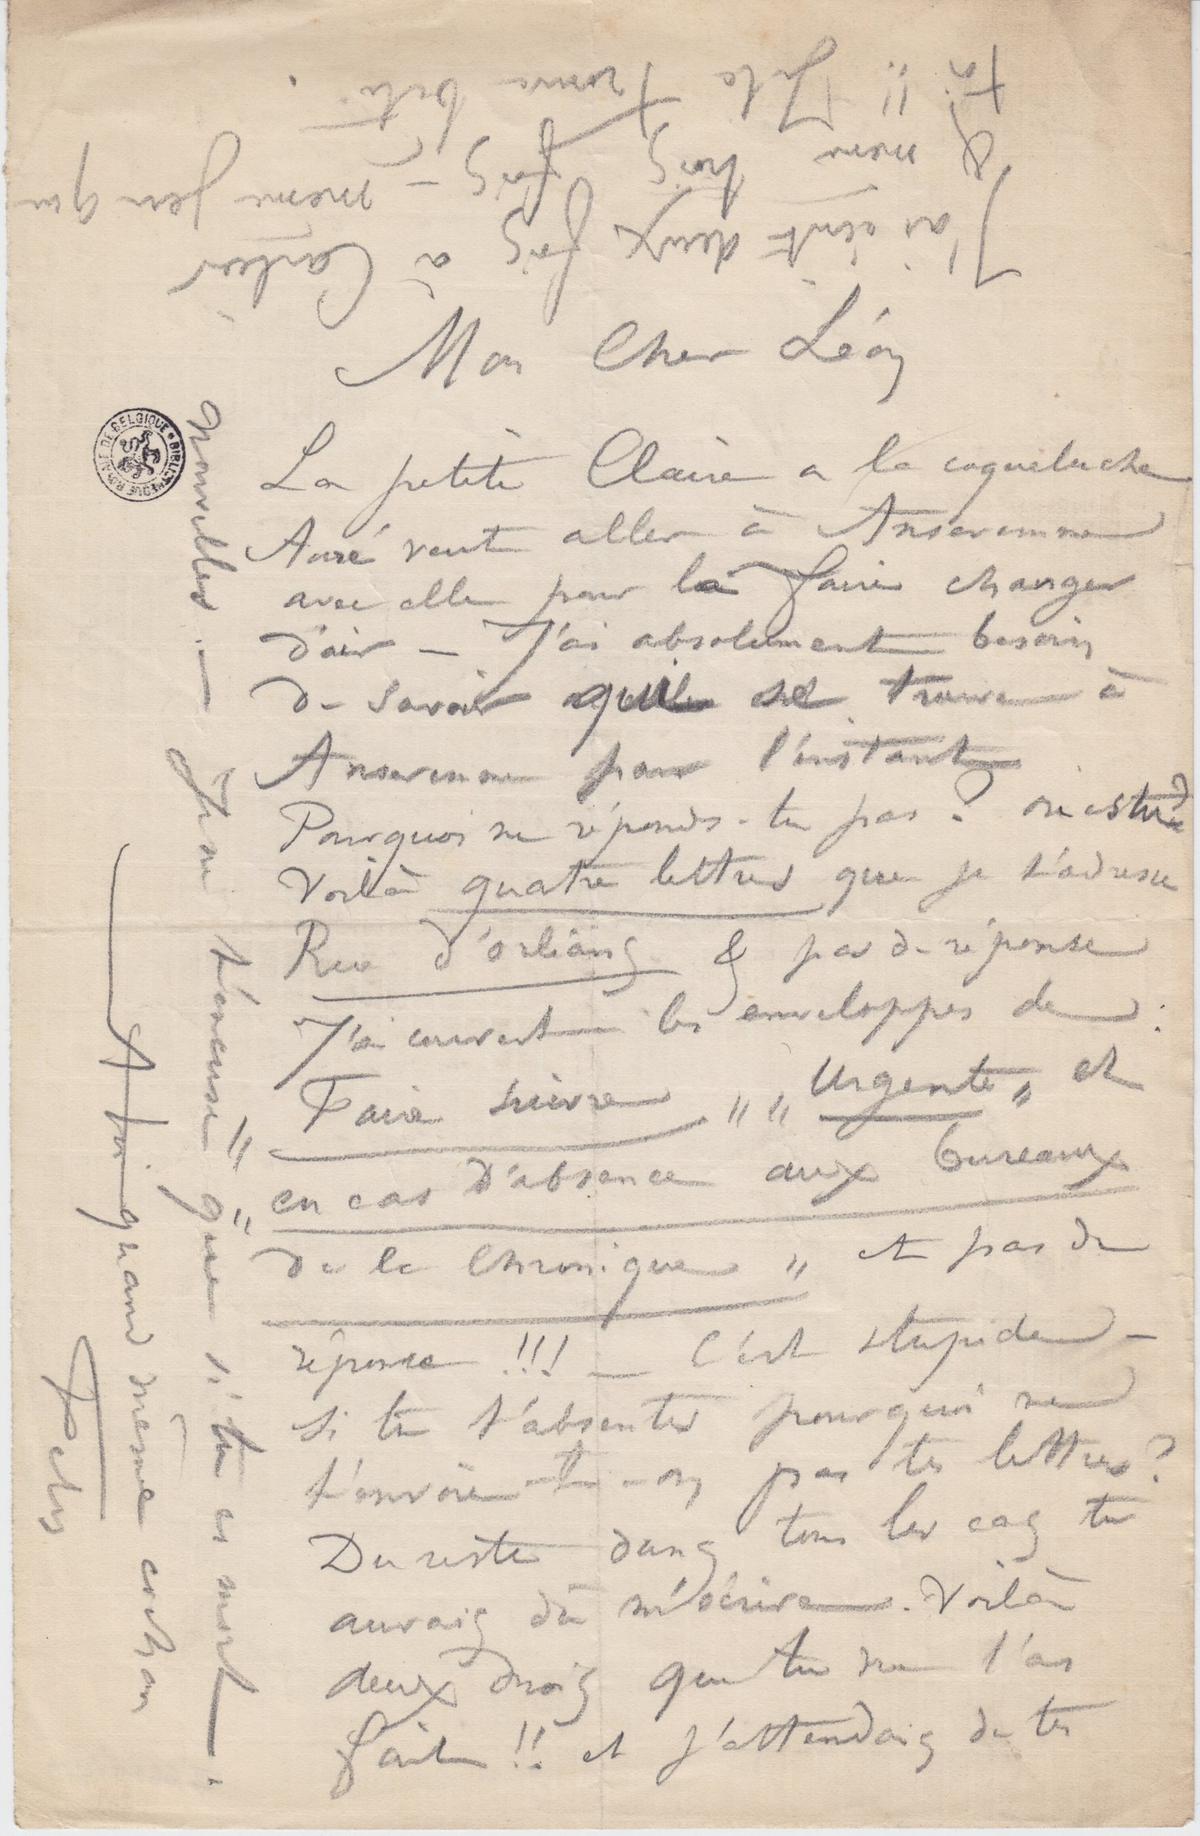 Mon Cher Léon
La petite Claire a la coqueluche
Auré veut aller à Anseremme
avec elle pour la faire changer
d'air — J'ai absolument besoin
de savoir qui se trouve à
Anseremme pour l'instant
Pourquoi ne réponds-tu pas ? où es tu ?
Voilà quatre lettres que je t'adresse
Rue d'orléans & pas de réponse
J'ai couvert les enveloppes de :
Faire suivre " " Urgente " et
" en cas d'absence aux bureaux
" de la Chronique " et pas de
réponse !!! — C'est stupide —
Si tu t'absentes pourquoi ne
t'envoie-t-on pas tes lettres ?
Du reste dans tous les cas tu
aurais dû m'écrire. Voilà
deux mois que tu ne l'as
fait !! et j'attendais de tes
nouvelles. — Je ne t'excuse que si tu es mort —.
A toi quand même cochon
Fély
J'ai écrit deux fois à Carlier
& même trois fois — même jeu que
toi !! Je le trouve bête.
BIBLIOTHEQUE ROYALE DE BELGIQUE